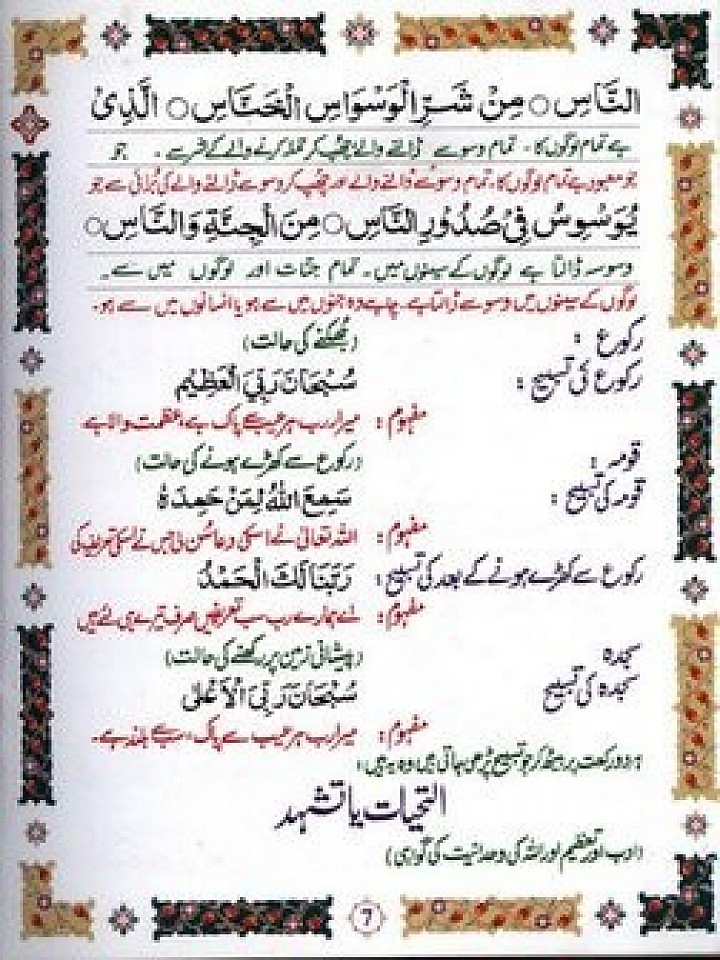 النَّاسِ ○ مِنْ شَرِّ الْوَسْوَاسِ الْخَنَّاسِ ○ الَّذِیْ
ہے تمام لوگوں کا۔ تمام وسوسے ڈالنے والے چھپ کر حملہ کرنے والے کے شر سے۔ جو
جو معبود ہے تمام لوگوں کا، تمام وسوسے ڈالنے والے اور چھپ کر وسوسے ڈالنے والے کی بُرائی سے جو
یُوَسْوِسُ فِیْ صُدُوْرِ النَّاسِ ○ مِنَ الْجِنَّةِ وَالنَّاسِ ○
وسوسہ ڈالتا ہے لوگوں کے سینوں میں۔ تمام جنات اور لوگوں میں سے۔
لوگوں کے سینوں میں وسوسے ڈالتا ہے۔ چاہے وہ جنوں میں سے ہو یا انسانوں میں سے ہو۔
رکوع : (جُھکنے کی حالت)
رکوع کی تسبیح : سُبْحَانَ رَبِّیَ الْعَظِیْمِ
مفہوم : میرا رب ہر عیب سے پاک ہے، عظمت والا ہے
قومہ : (رکوع سے کھڑے ہونے کی حالت)
قومہ کی تسبیح : سَمِعَ اللهُ لِمَنْ حَمِدَهٗ
مفہوم : اللہ تعالیٰ نے اسکی دعا سُن لی جس نے اسکی تعریف کی
رکوع سے کھڑے ہونے کے بعد کی تسبیح : رَبَّنَا لَكَ الْحَمْدُ
مفہوم : اے ہمارے رب سب تعریفیں صرف تیرے ہی لئے ہیں
سجدہ (پیشانی زمین پر رکھنے کی حالت)
سجدہ کی تسبیح سُبْحَانَ رَبِّیَ الْاَعْلٰی
مفہوم : میرا رب ہر عیب سے پاک، سب سے بلند ہے۔
ہر دو رکعت پر بیٹھ کر جو تسبیح پڑھی جاتی ہیں وہ یہ ہیں :
التحیات یا تشہد
(ادب اور تعظیم اور اللہ کی وحدانیت کی گواہی)
7